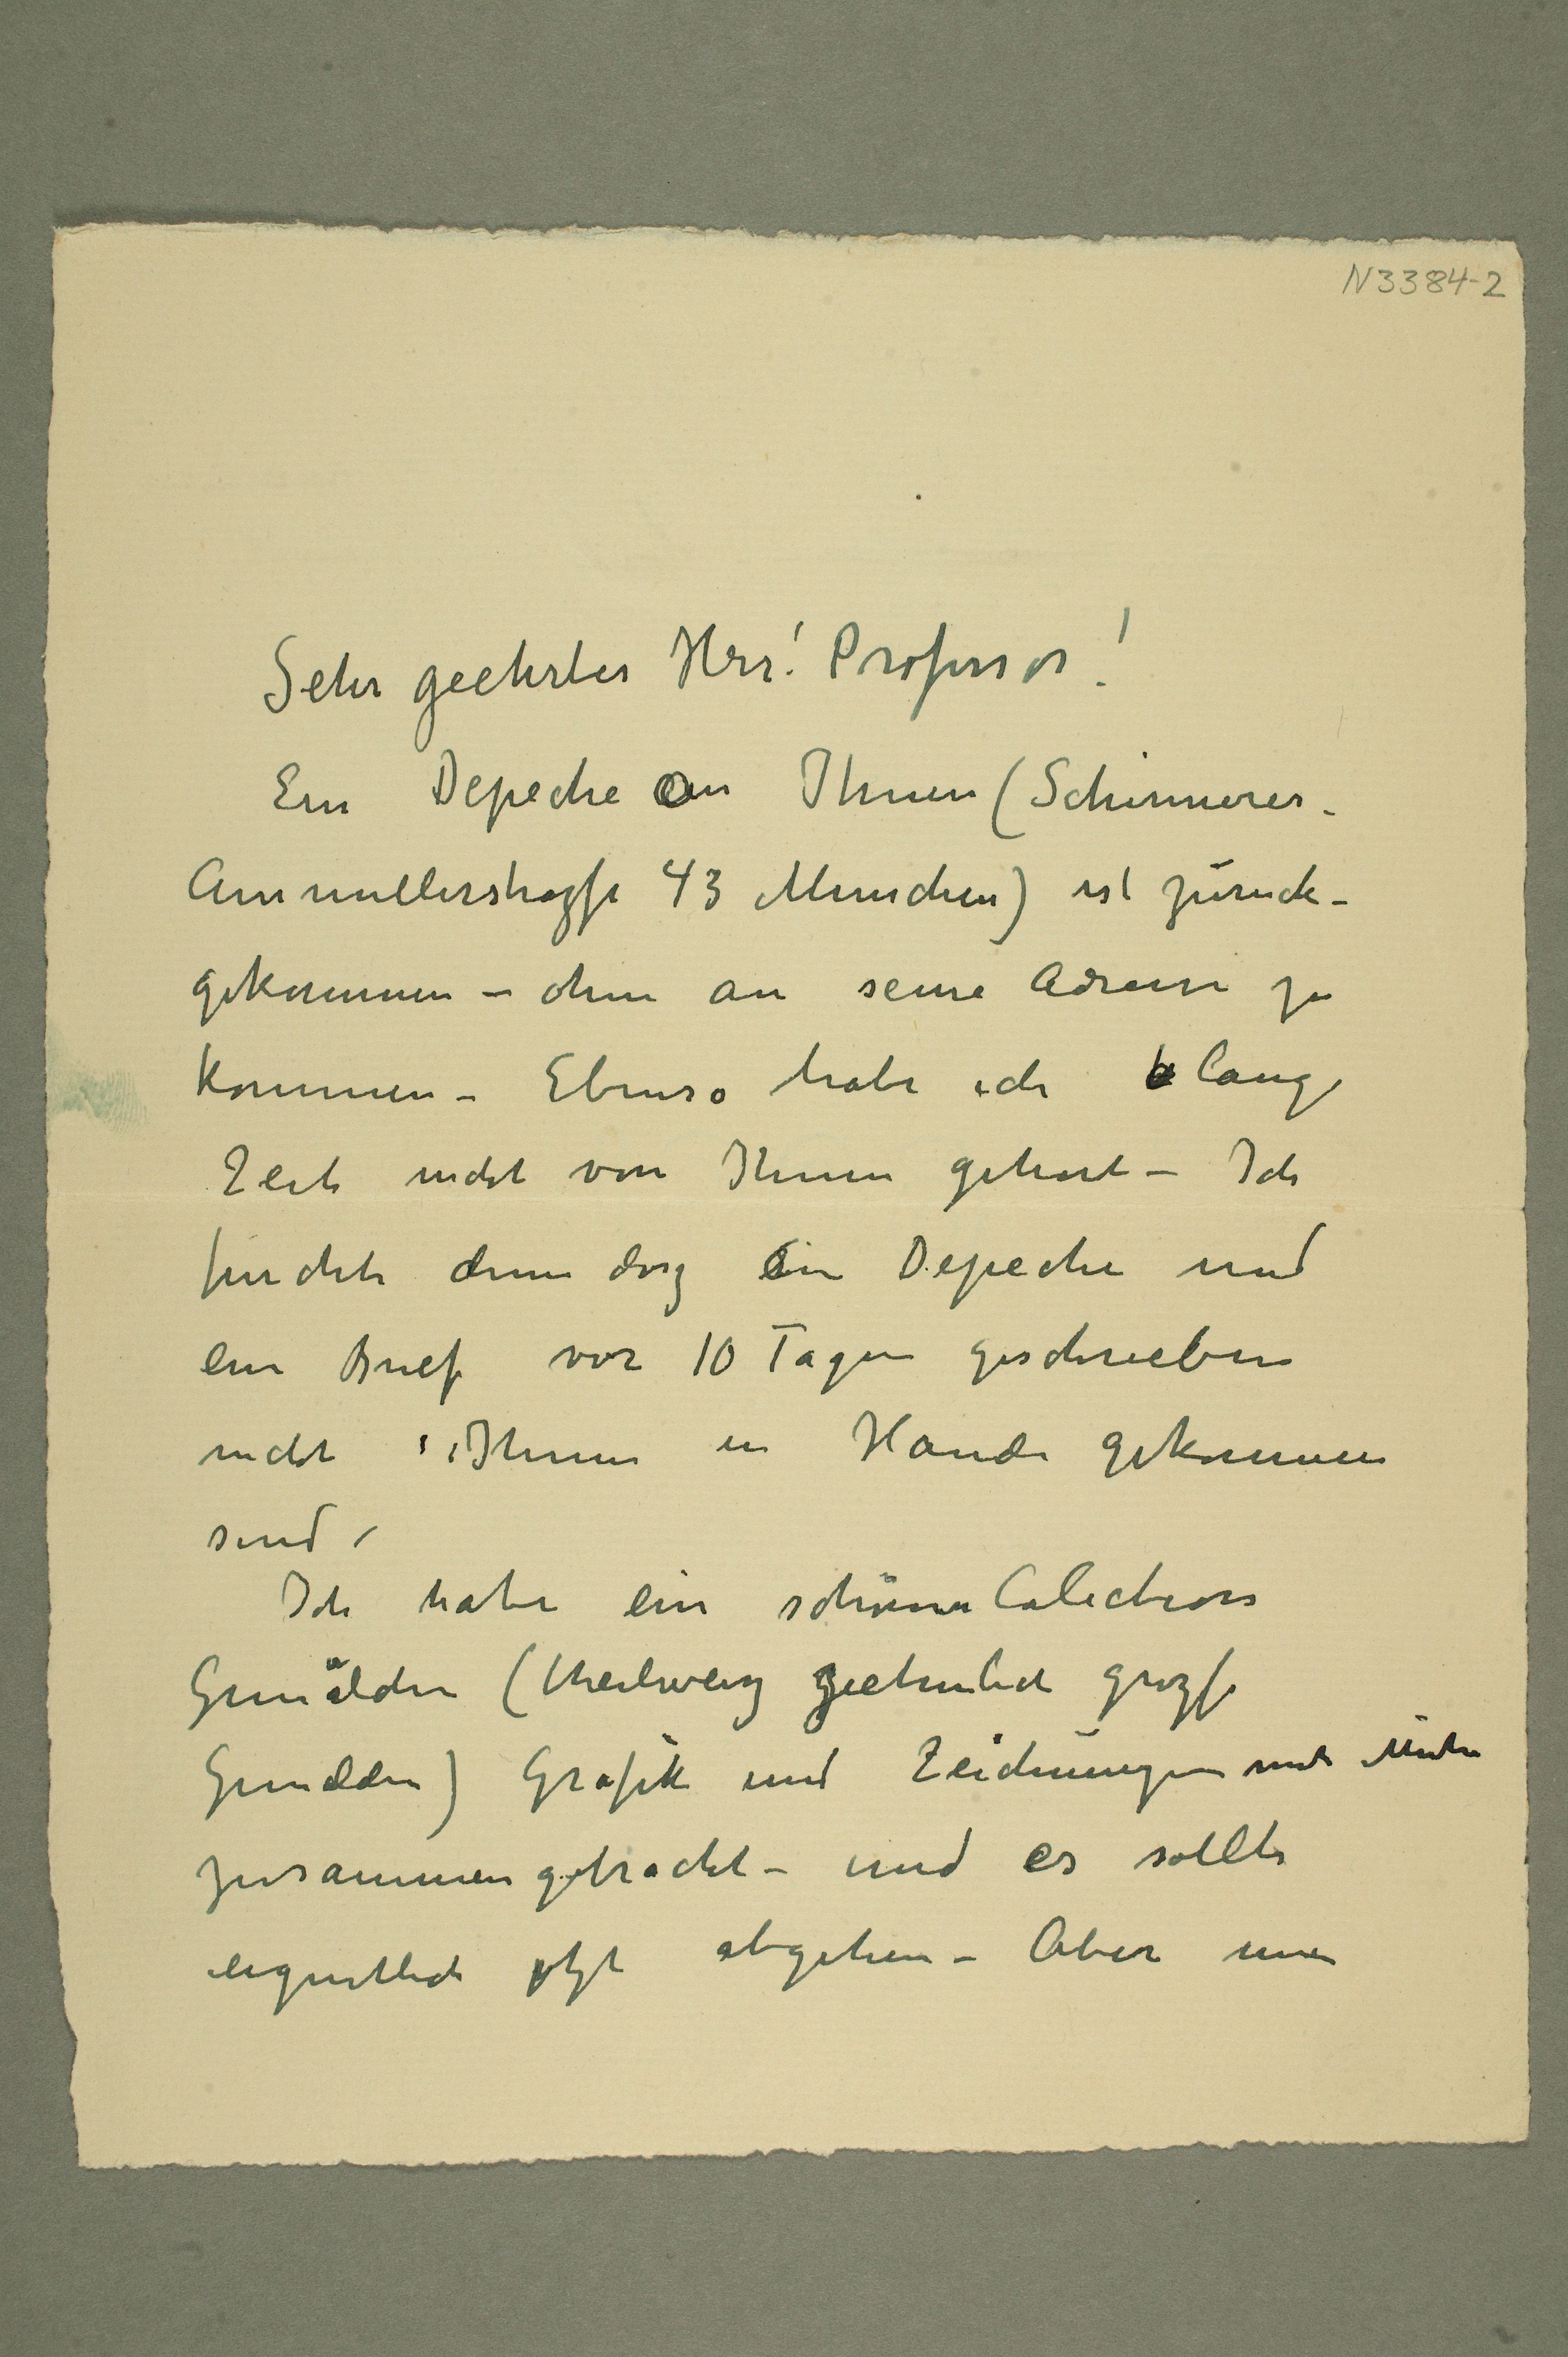 N3384-2
Sehr geehrter Herr! Professor!
Ein Depeche an Ihnen (Schinnerer -
Ainmillerstrasse 43 Munchen) ist zuruck -
gekommen – ohne an seine Adresse zu
kommen – Ebenso habe ich lange
Zeit nicht von Ihnen gehort – Ich
furchte denn das ein Depeche und
ein Brief vor 10 Tagen geschrieben
nicht Ihnen in Hande gekommen
sind
Ich habe ein schöne Colection
Gemälden (theilweis ziehmlich grosse
Gemälden) Grafik und Zeichnungen mit Mühe
zusammengebracht – und es sollte
eigentlich jetzt abgehen – Aber nun